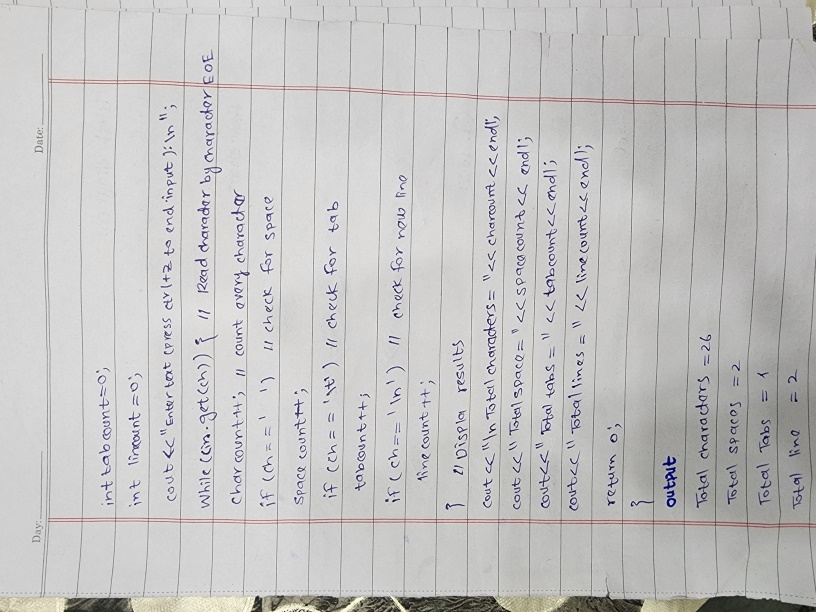 Day:
Date:
int tabcount=0;
int linecount=0;
cout<<"Enter text (press ctrl+z to end input):\n";
While (cin.get(ch)) { // Read character by character EOE
Charcount++; // count every character
if (ch==' ') // check for space
space count++;
if (ch=='\t') // check for tab
tabcount++;
if (ch=='\n') // check for new line
line count++;
} // Displa results
cout<<"\n Total characters="<<charcount<<endl;
cout<<"Total space="<<spacecount<<endl;
cout<<"Total tabs="<<tabcount<<endl;
cout<<"Total lines="<<linecount<<endl;
return 0;
}
output
Total characters =26
Total spaces =2
Total Tabs =1
Total line =2